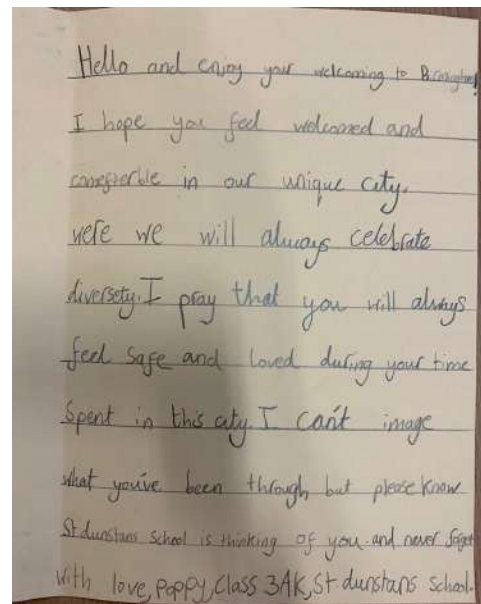 Hello and enjoy your welcoming to Birmingham!
I hope you feel welcomed and
comefrerble in our unique city.
were we will always celebrate
diversety. I pray that you will always
feel safe and loved during your time
spent in this city. I can't image
what you've been through, but please know
St dunstans school is thinking of you. and never forget
with love, Poppy, Class 3AK, St dunstans school.